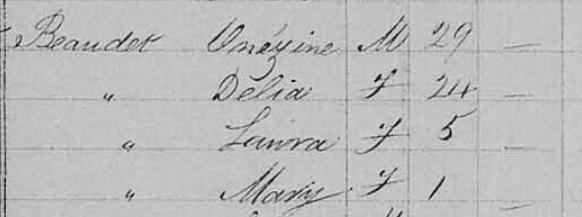 Beaudet Onézine M 29 —
" Délia F 24 —
" Laura F 5 —
" Mary F 1 —